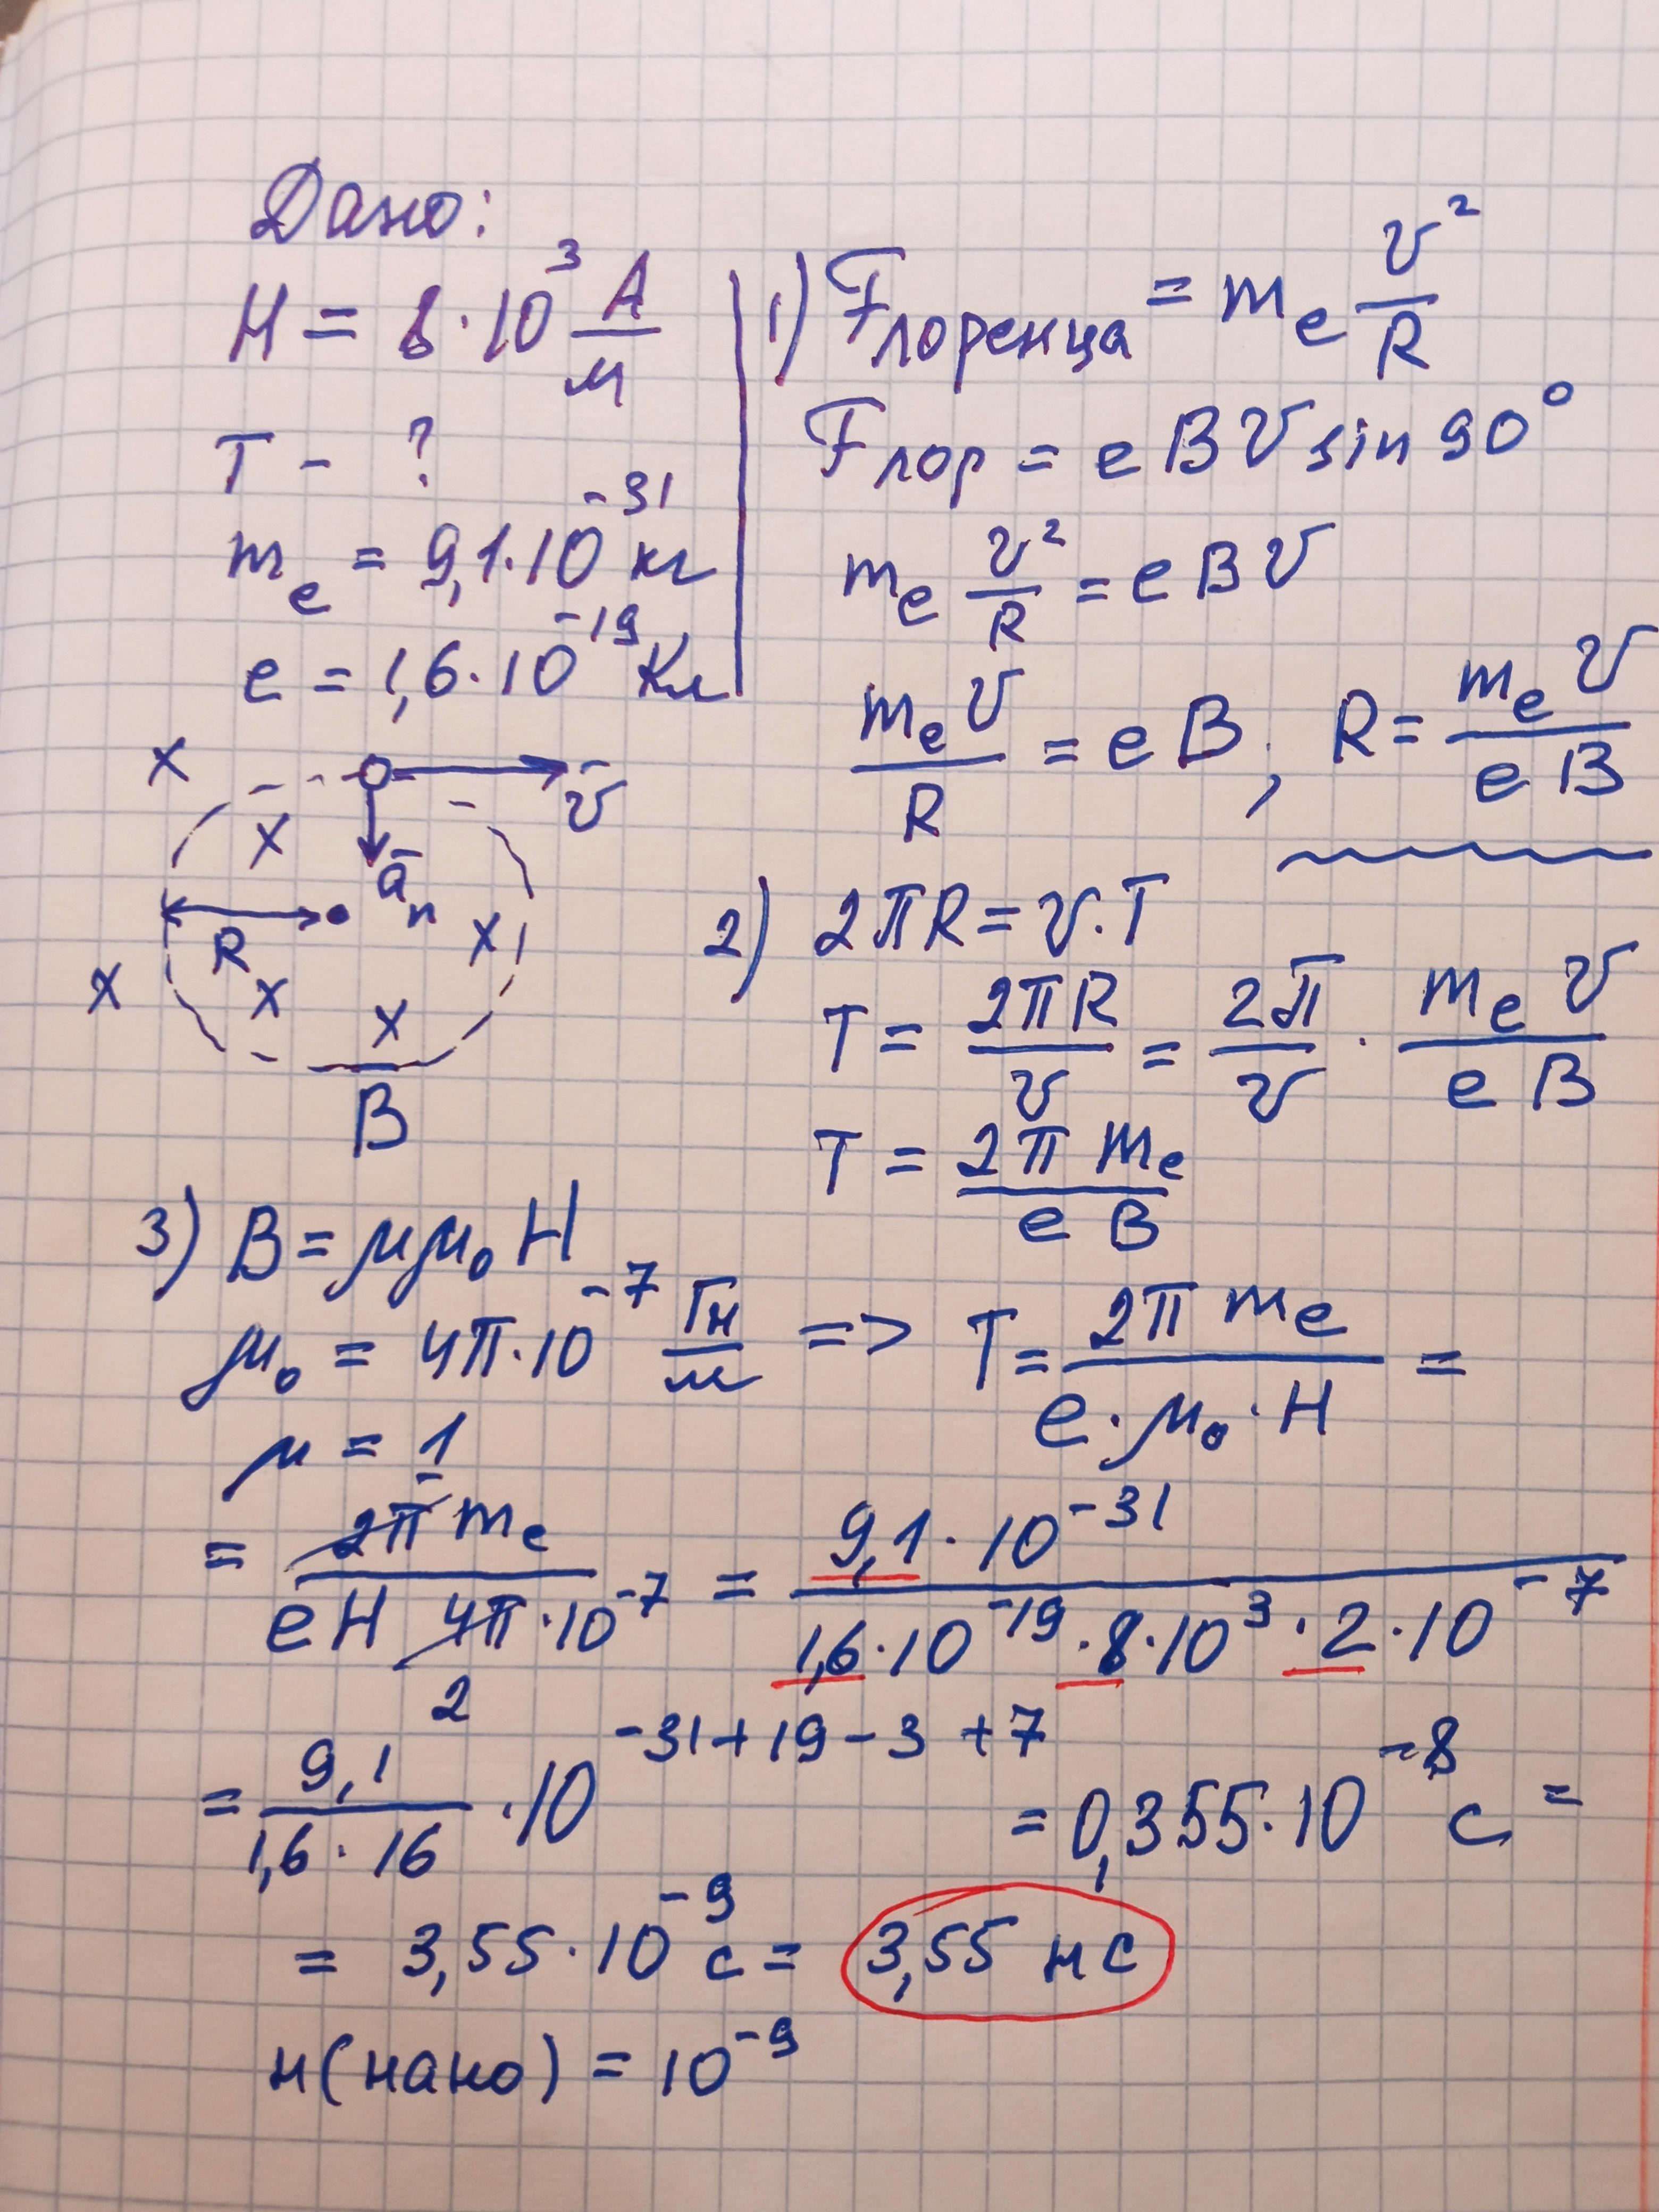 Дано:
H = 8·10³ А/м
T - ?
mₑ = 9,1·10⁻³¹ кг
e = 1,6·10⁻¹⁹ Кл
1) Fлоренца = mₑ v²/R
Fлор = e B v sin 90°
mₑ v²/R = e B v
mₑ v/R = e B, R = mₑ v/(e B)
v̄
āₙ
R
B̄
2) 2πR = v·T
T = 2πR/v = 2π/v · mₑ v/(e B)
T = 2π mₑ/(e B)
3) B = μμ₀H
μ₀ = 4π·10⁻⁷ Гн/м => T = 2π mₑ/(e·μ₀·H) =
μ = 1
= 2π mₑ/(e H 4π·10⁻⁷) = 9,1·10⁻³¹/(1,6·10⁻¹⁹·8·10³·2·10⁻⁷)
2
= 9,1/(1,6·16) ·10⁻³¹⁺¹⁹⁻³⁺⁷ = 0,355·10⁻⁸ с =
= 3,55·10⁻⁹ с = 3,55 нс
н(нано) = 10⁻⁹